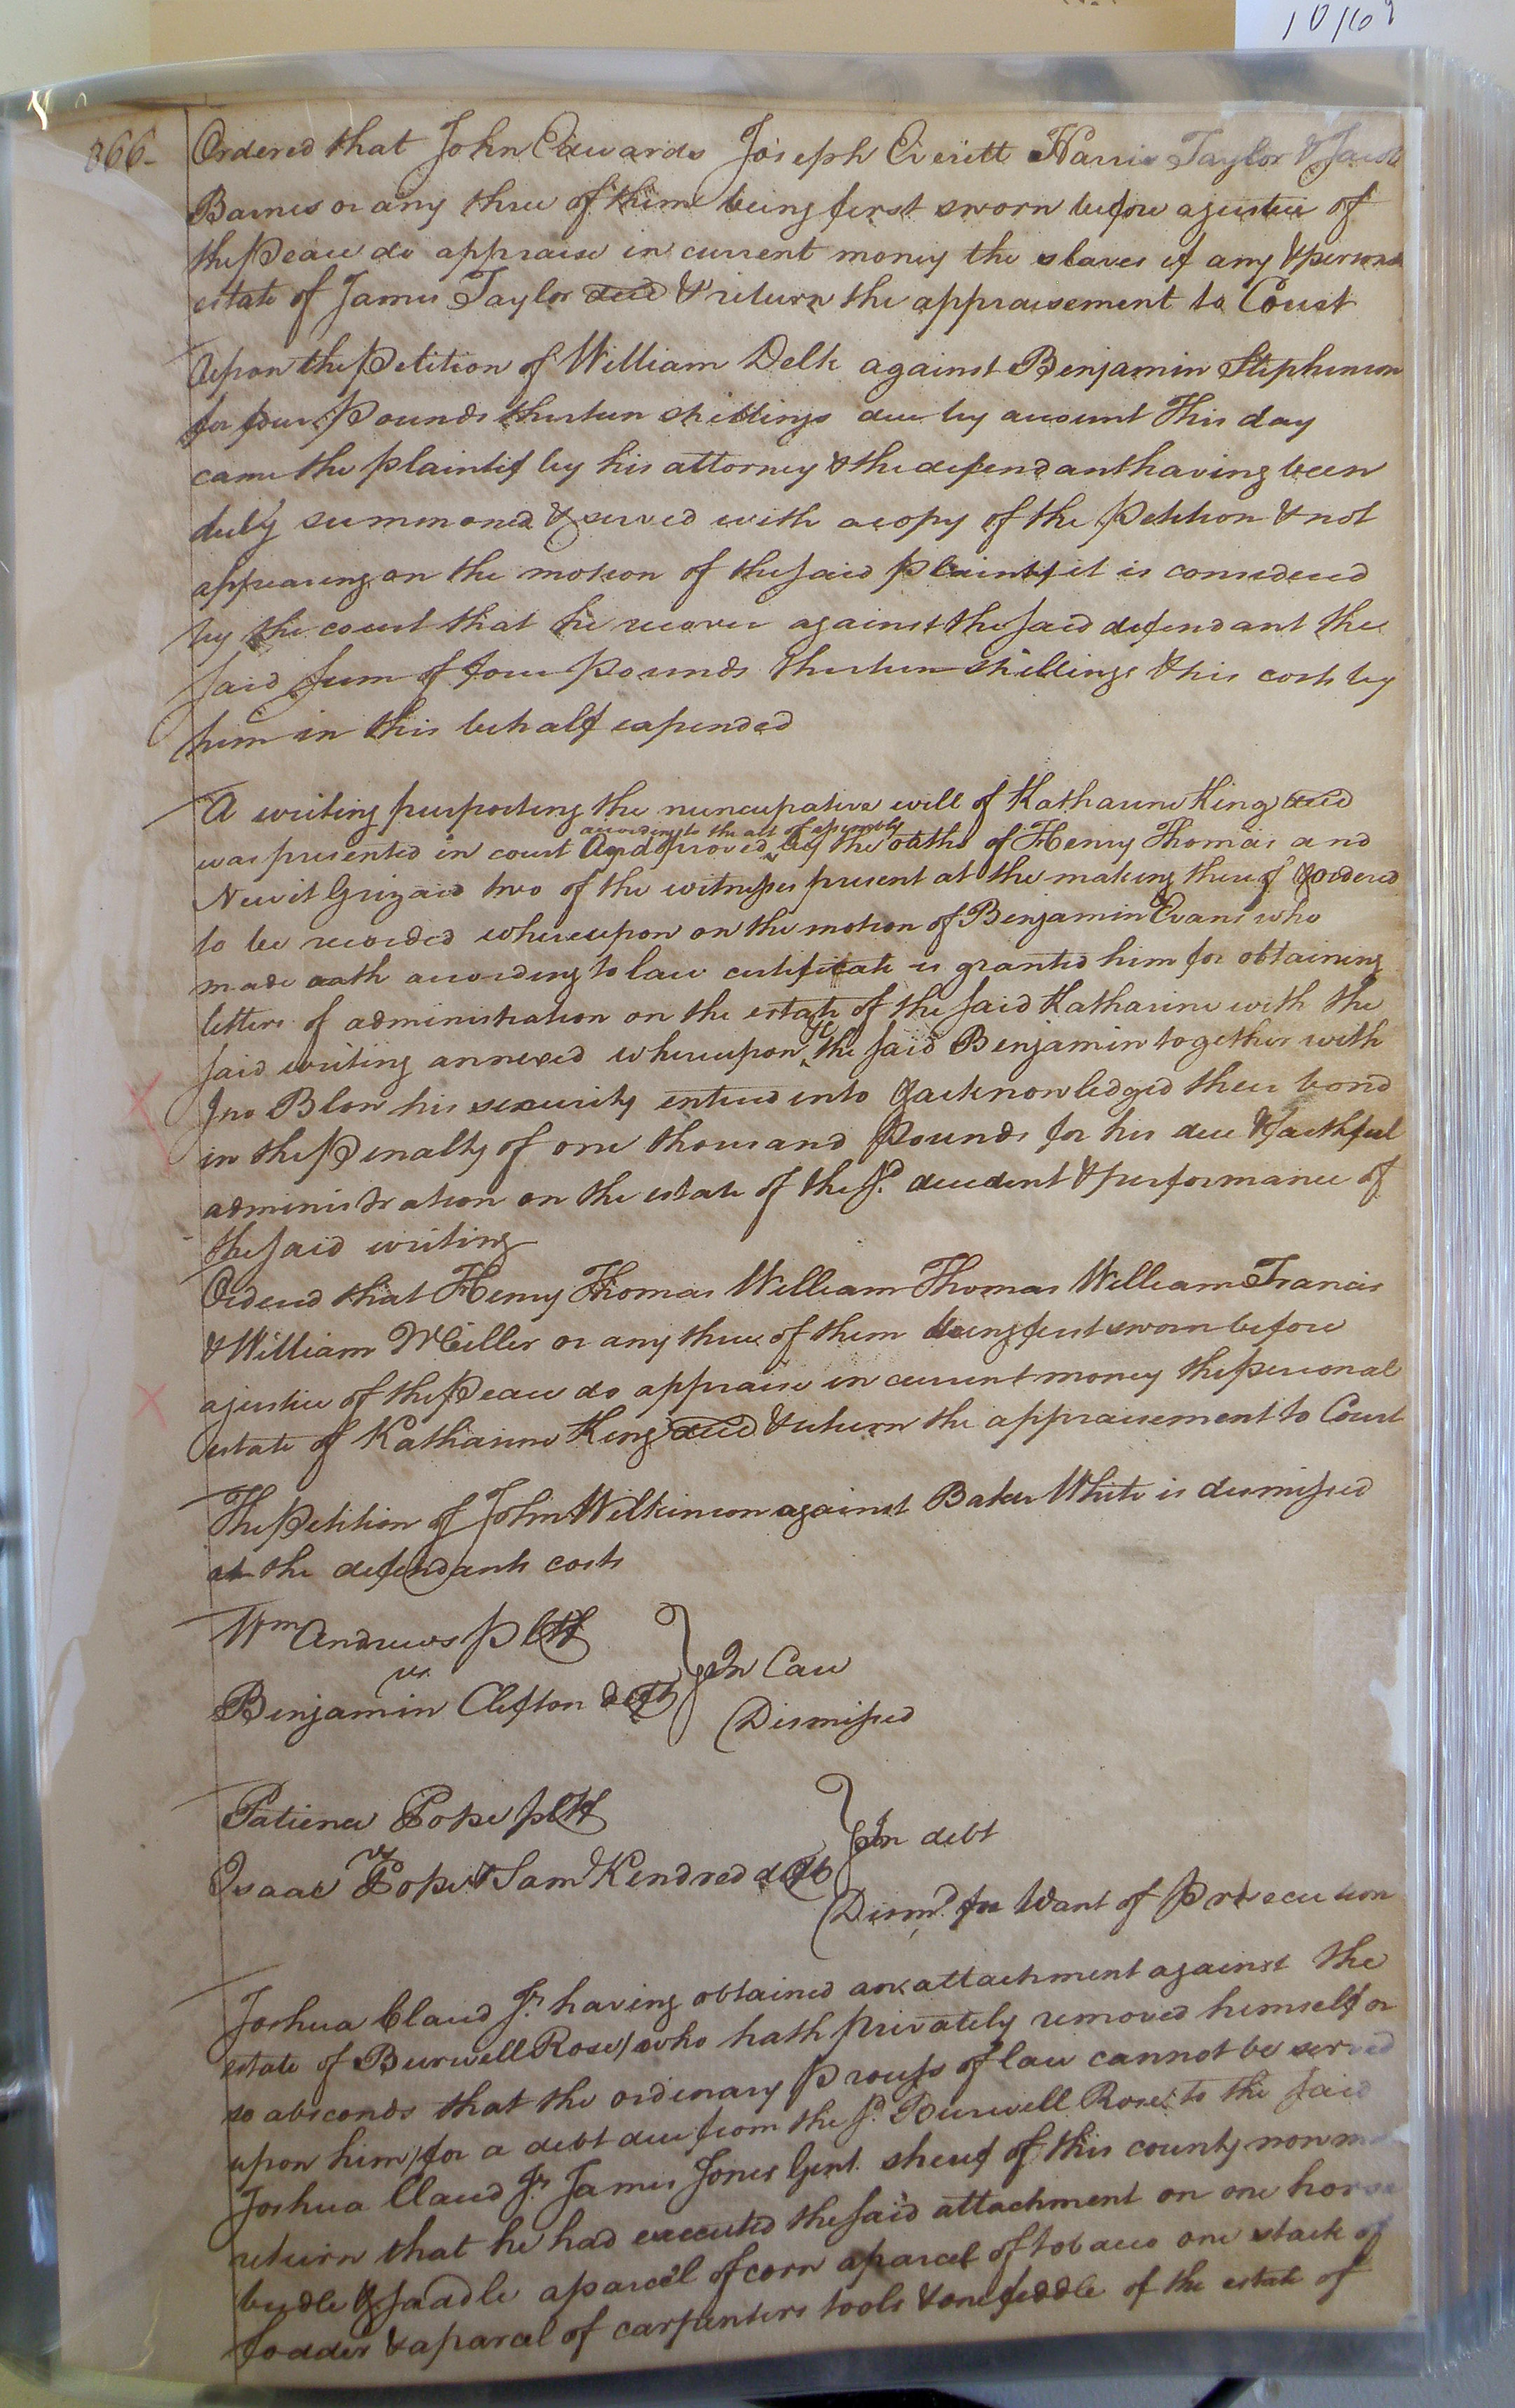 10/69
366-
Ordered that John Edwards Joseph Everitt Harris Taylor & Jacob
Barnes or any three of them being first sworn before a justice of
the Peace do appraise in current money the slaves if any & personal
estate of James Taylor decd & return the appraisement to Court
Upon the Petition of William Delk against Benjamin Stephenson
for four Pounds thirteen shillings due by account This day
came the plaintif by his attorney & the defendant having been
duly summoned & served with a copy of the Petition & not
appearing on the motion of the said plaintif it is considered
by the court that he recover against the said defendant the
said sum of four Pounds thirteen shillings & his costs by
him in this behalf expended
A writing purporting the nuncupative will of Katharine King decd
was presented in court and proved according to the act of assembly by the oaths of Henry Thomas and
Newit Grizard two of the witnesses present at the making thereof & ordered
to be recorded whereupon on the motion of Benjamin Evans who
made oath according to law certificate is granted him for obtaining
letters of administration on the estate of the said Katharine with the
said writing annexed whereupon the said Benjamin together with
Jno Blow his security entered into & acknowledged their bond
in the Penalty of one thousand Pounds for his due & faithful
administration on the estate of the sd. decedent & performance of
the said writing
Ordered that Henry Thomas William Thomas William Francis
& William Miller or any three of them being first sworn before
a justice of the Peace do appraise in current money the personal
estate of Katharine King decd & return the appraisement to Court
The Petition of John Wilkinson against Baker White is dismissed
at the defendants costs
Wm Andrews pltf
vs
Benjamin Clifton deft
In Case
Dismissed
Patience Pope pltf
vs
Isaac Pope & Saml Kendred defts
In debt
Dismd. for Want of Prosecution
Joshua Claud Jr. having obtained an attachment against the
estate of Burwell Rose (who hath privately removed himself or
so absconds that the ordinary Process of law cannot be served
upon him) for a debt due from the sd. Burwell Rose to the said
Joshua Claud Jr. James Jones Gent. sherif of this county now
return that he had executed the said attachment on one horse
bridle & saddle a parcel of corn a parcel of tobacco one stack of
fodder & a parcel of carpenters tools & one fiddle of the estate of